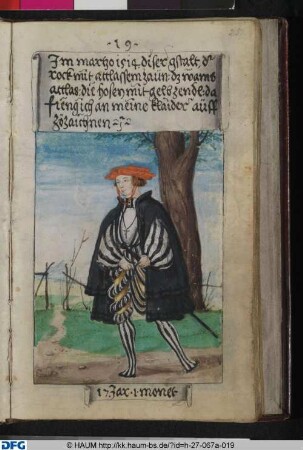 · 19 ·
Im marzo 1514 diser gstalt, d
rock mit attlassem zaun: dz wams
attlas: die hosen mit gelb zendl: da
fieng ich an meine klaider auff
17 Jar · 1 monet
DFG
© HAUM http://kk.haum-bs.de/?id=h-27-067a-019